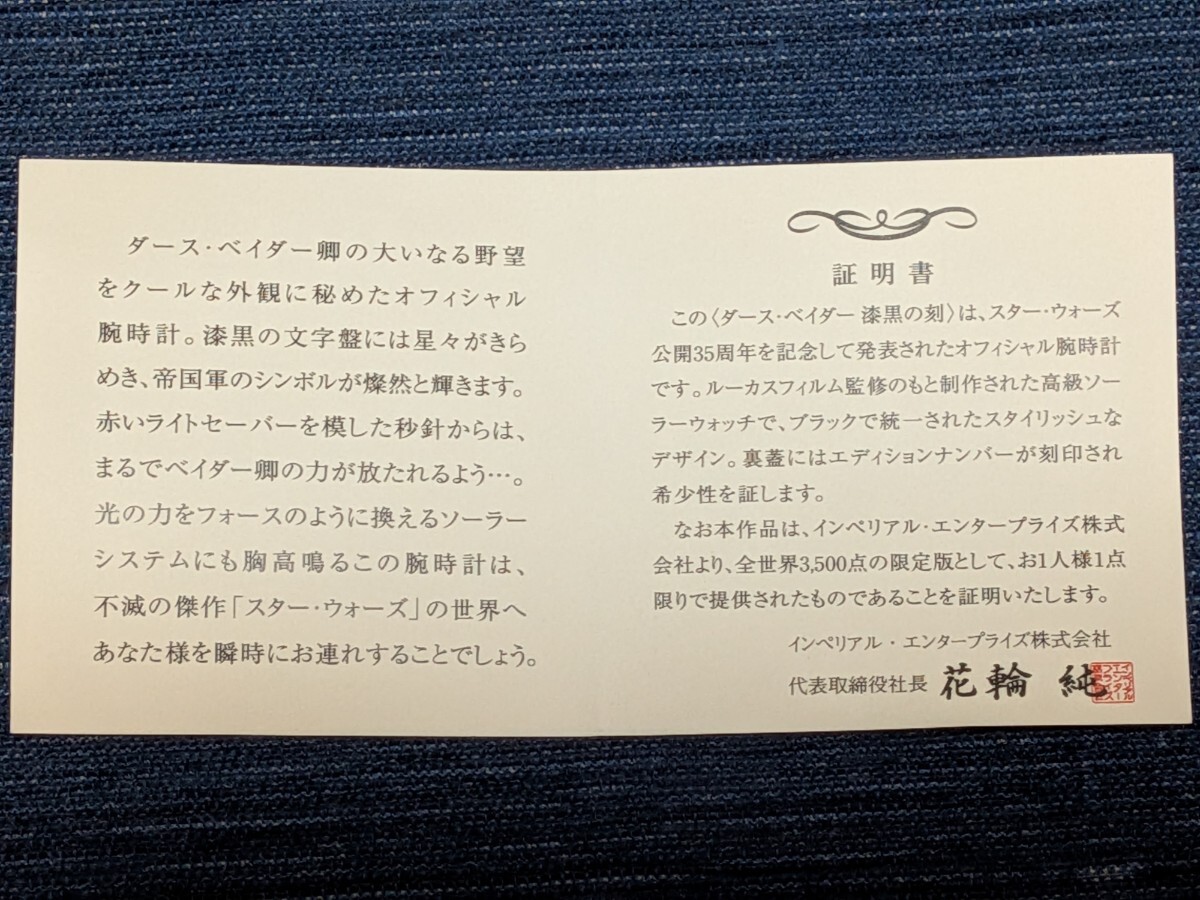 ダース・ベイダー卿の大いなる野望
をクールな外観に秘めたオフィシャル
腕時計。漆黒の文字盤には星々がきら
めき、帝国軍のシンボルが燦然と輝きます。
赤いライトセーバーを模した秒針からは、
まるでベイダー卿の力が放たれるよう…。
光の力をフォースのように換えるソーラー
システムにも胸高鳴るこの腕時計は、
不滅の傑作「スター・ウォーズ」の世界へ
あなた様を瞬時にお連れすることでしょう。
証明書
この〈ダース・ベイダー 漆黒の刻〉は、スター・ウォーズ
公開35周年を記念して発表されたオフィシャル腕時計
です。ルーカスフィルム監修のもと制作された高級ソー
ラーウォッチで、ブラックで統一されたスタイリッシュな
デザイン。裏蓋にはエディションナンバーが刻印され
希少性を証します。
なお本作品は、インペリアル・エンタープライズ株式
会社より、全世界3,500点の限定版として、お1人様1点
限りで提供されたものであることを証明いたします。
インペリアル・エンタープライズ株式会社
代表取締役社長 花輪 純